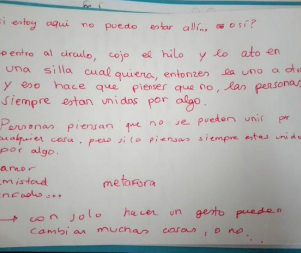 si estoy aquí no puedo estar allí... o sí?
entro al círculo, cojo el hilo y lo ato en
una silla cualquiera, entonzes ea uno a otr
y eso hace que pienses que no, las personas
siempre estan unidas por algo.
Personas piensan que no se pueden unir por
cualquier cosa, pero si lo piensas siempre estas unido
por algo.
amor
mistad
metafora
→ con solo hacer un gesto pueden
cambiar muchas cosas, o no...